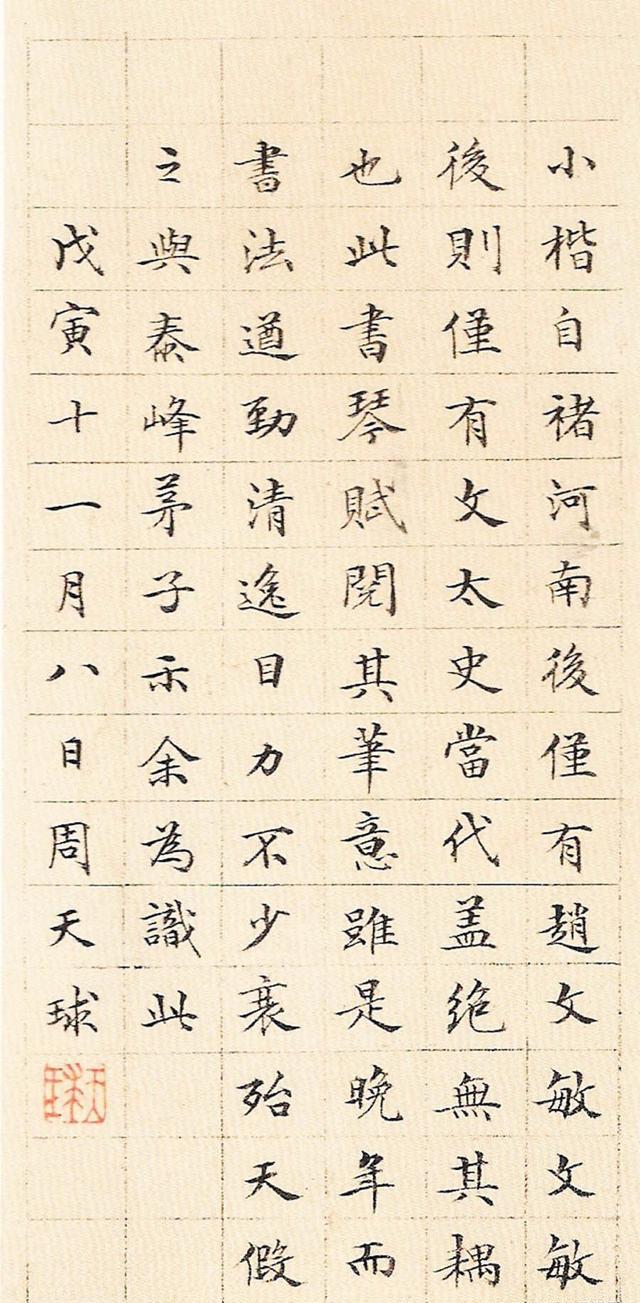 小楷自褚河南後僅有趙文敏文敏
後則僅有文太史當代盖絕無其耦
也此書琴賦閱其筆意雖是晚年而
書法遒勁清逸目力不少衰殆天假
之與泰峰茅子示余為識此
戊寅十一月八日周天球